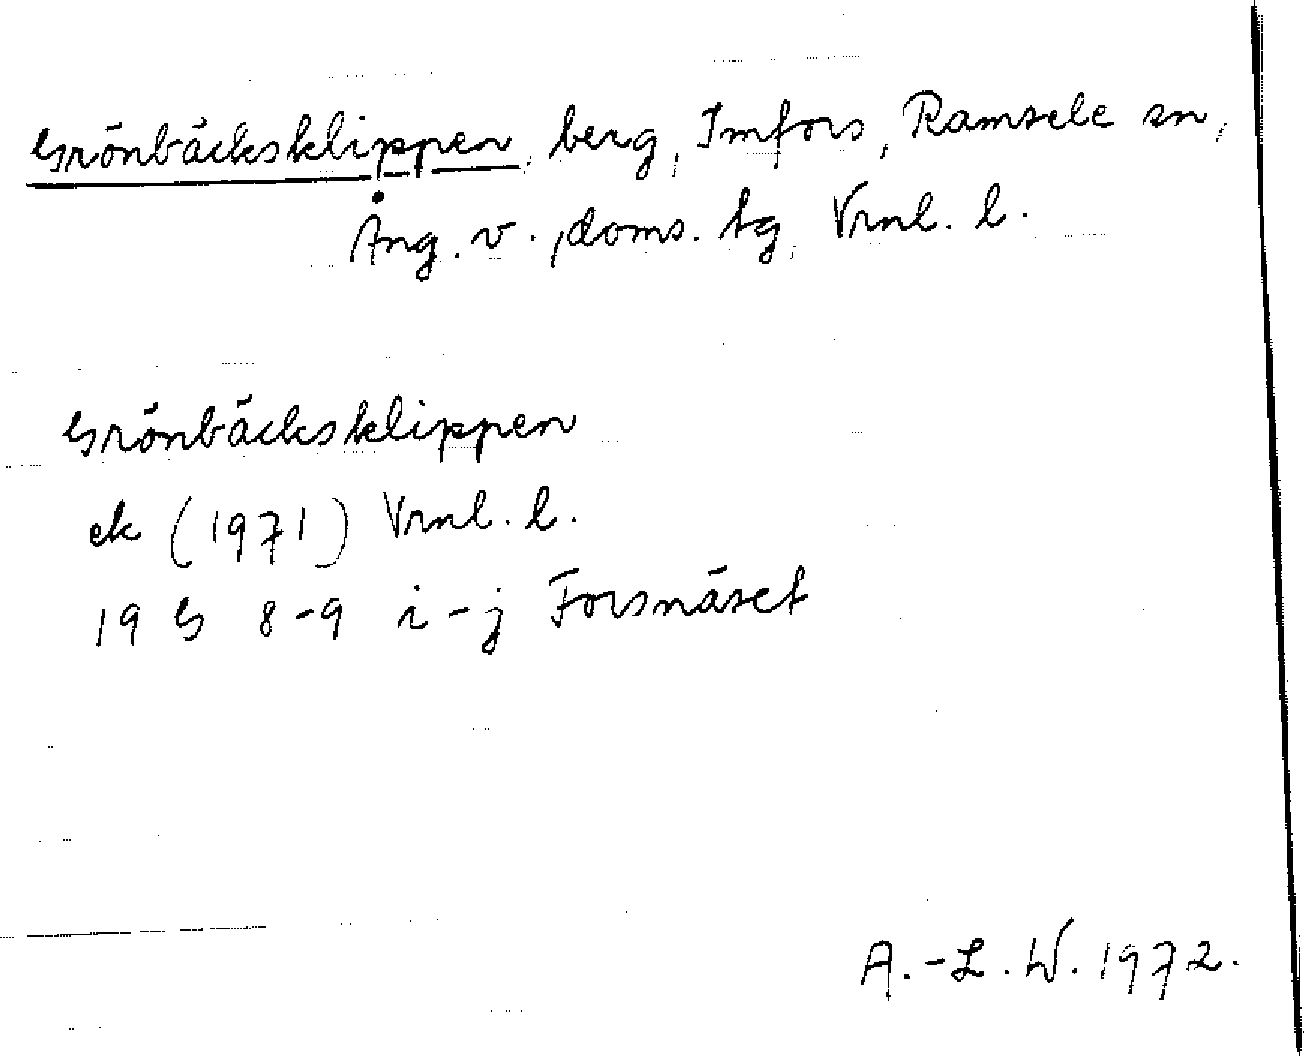 Grönbäcksklippen, berg, Imfors, Ramsele sn,
Ång. v., doms. tg, Vrnl. l.
Grönbäcksklippen
ek (1971) Vrnl. l.
19 G 8-9 i-j Forsnäset
A.-L. W. 1972.